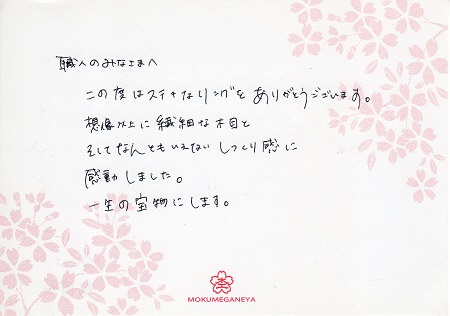 職人のみなさまへ
この度はステキなリングをありがとうございます。
想像以上に繊細な木目と
そしてなんともいえないしっくり感に
感動しました。
一生の宝物にします。
MOKUMEGANEYA